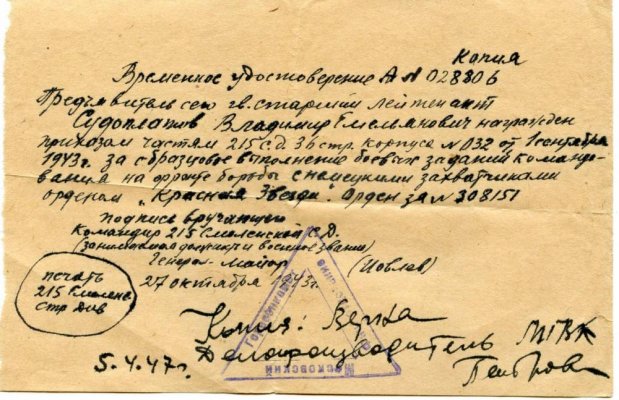 Копия
Временное удостоверение А № 028306
Предъявитель сего гв. старший лейтенант
Судоплатов Владимир Емельянович награжден
приказом частям 215 с.д. 36 стр. корпуса № 032 от 1 сентября
1943г. за образцовое выполнение боевых заданий командо-
вания на фронте борьбы с немецкими захватчиками
орденом „Красная Звезда". Орден за № 308151
подпись вручающего
Командир 215 Смоленской С.Д.
(занимаемая должность и военное звание)
Генерал-майор (Иовлев)
27 октября 1943г.
печать
215 Смоленс.
стр див
Копия: Верна
Делопроизводитель
5.4.47г. Петров
Московский